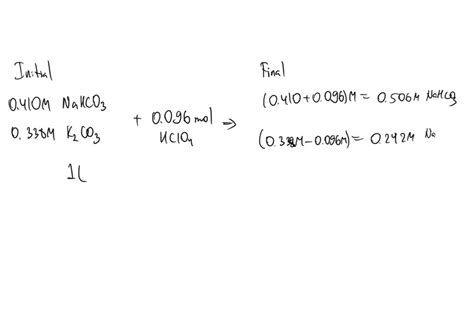 Initial
0.410M NaHCO3
0.338M K2CO3
1L
+ 0.096 mol
HClO4
→
Final
(0.410+0.096)M = 0.506M NaHCO3
(0.338M-0.096M) = 0.242M Na